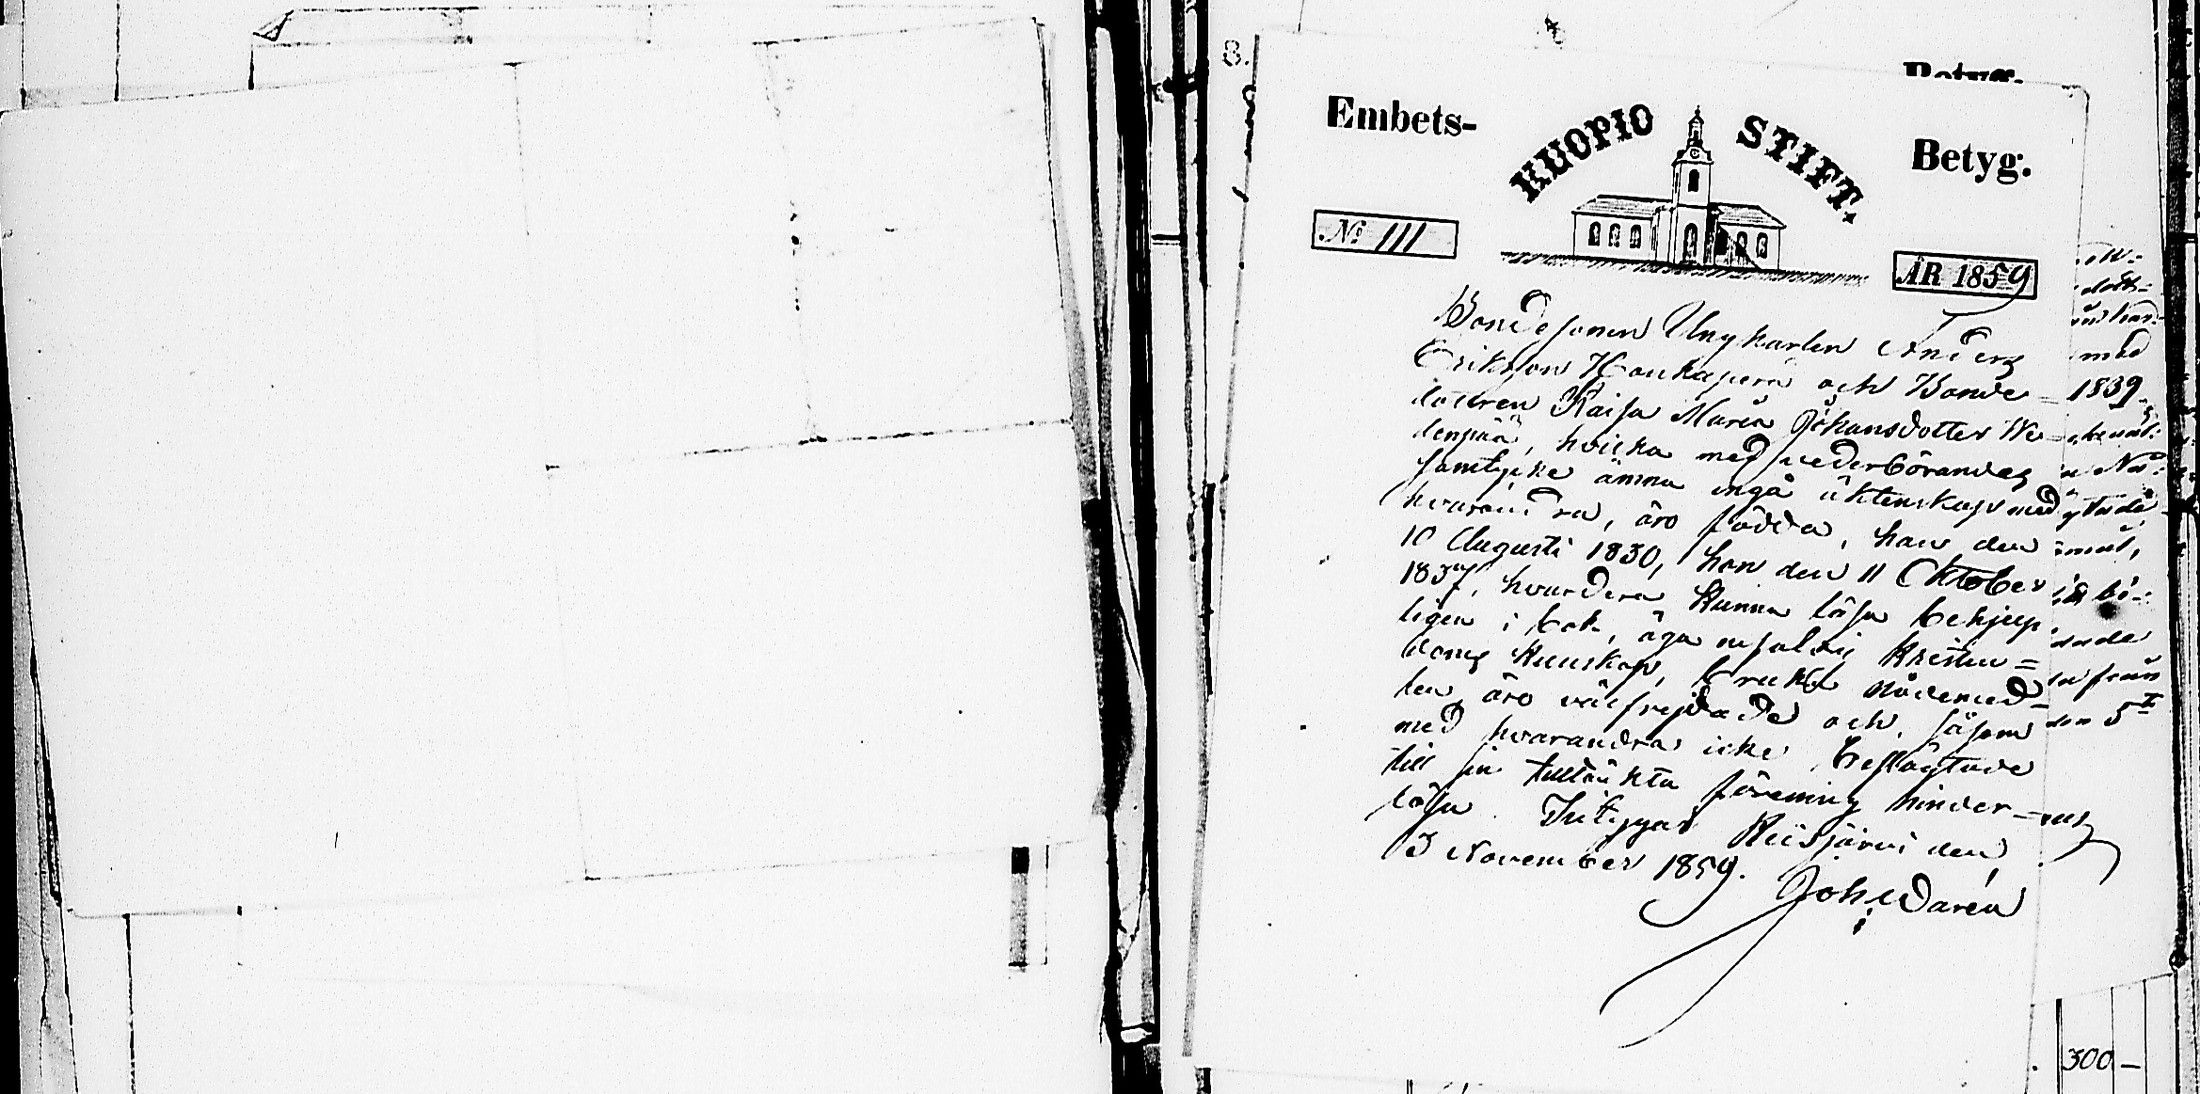 8.
Betyg.
Embets-
KUOPIO STIFT.
Betyg.
No 111
ÅR 1859
Bondesonen Ungkarlen Anders
Eriksson Honkaperä och Bonde=
dottren Kaisa Maria Johansdotter We-
denpää, hvilka med vederbörandes
samtycke ämna ingå äktenskap med
hvarandra, äro födda, han den
10 Augusti 1830, hon den 11 Oktober
1837, hvardera kunna läsa behjelp-
ligen i bok, äga nöjaktig kristen=
doms kunskap, brukat nådemed-
len, äro välfrejdade och, såsom
med hvarandra icke beslägtade
till sin tilltänkta förening hinder=
lösa. Intygar Reisjärvi den
3 November 1859.
Joh. Darén
1839
med
den 5te
300 -